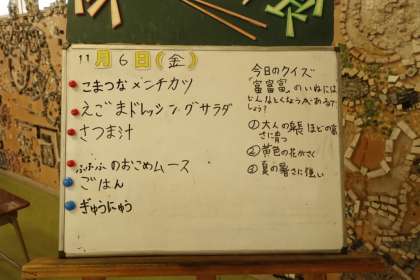 11月6日(金)
こまつなメンチカツ
えごまドレッシングサラダ
さつま汁
ふふふのおこめムース
ごはん
ぎゅうにゅう
今日のクイズ
"富富富"のいねには
どんなとくちょうがあるで
しょう?
①大人の身長ほどの高
さに育つ
②黄色の花がさく
③夏の暑さに強い